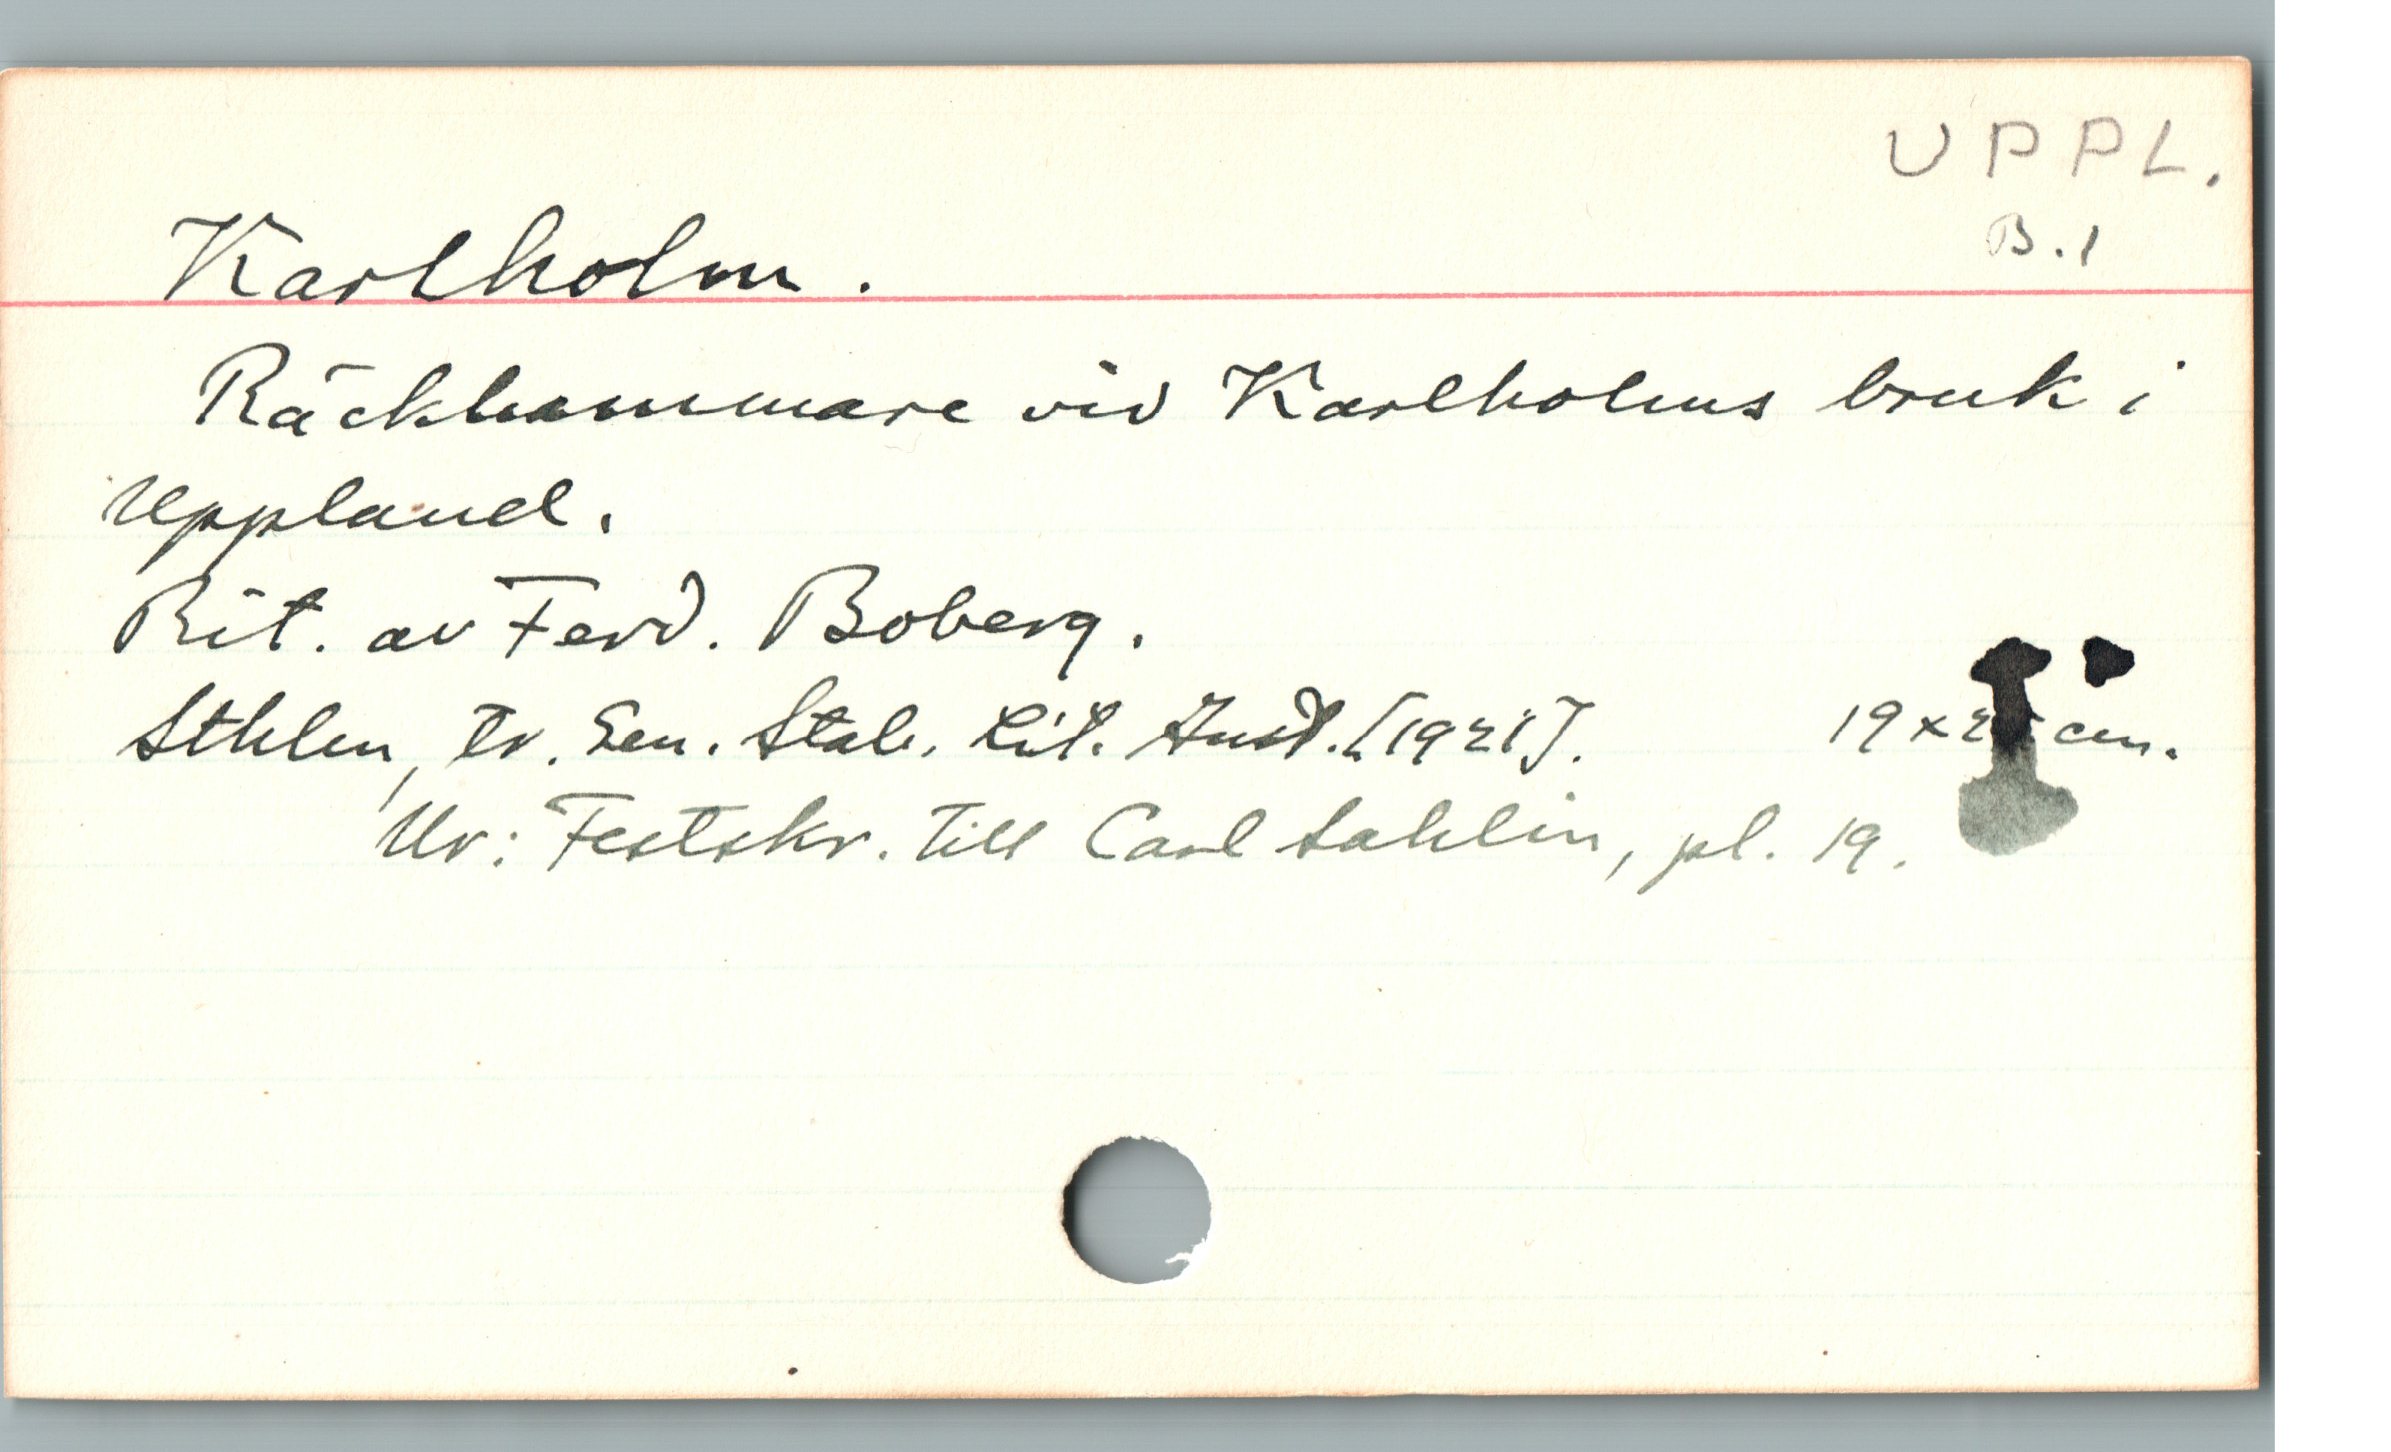 UPPL.
B.1
Karlholm.
Räckhammare vid Karlholms bruk i
Uppland.
Rit. av Ferd. Boberg.
Sthlm, tr. Gen. Stab. Lit. Anst. [1921]. 19 x cm.
Ur: Festskr. till Carl Sahlin, pl. 19.